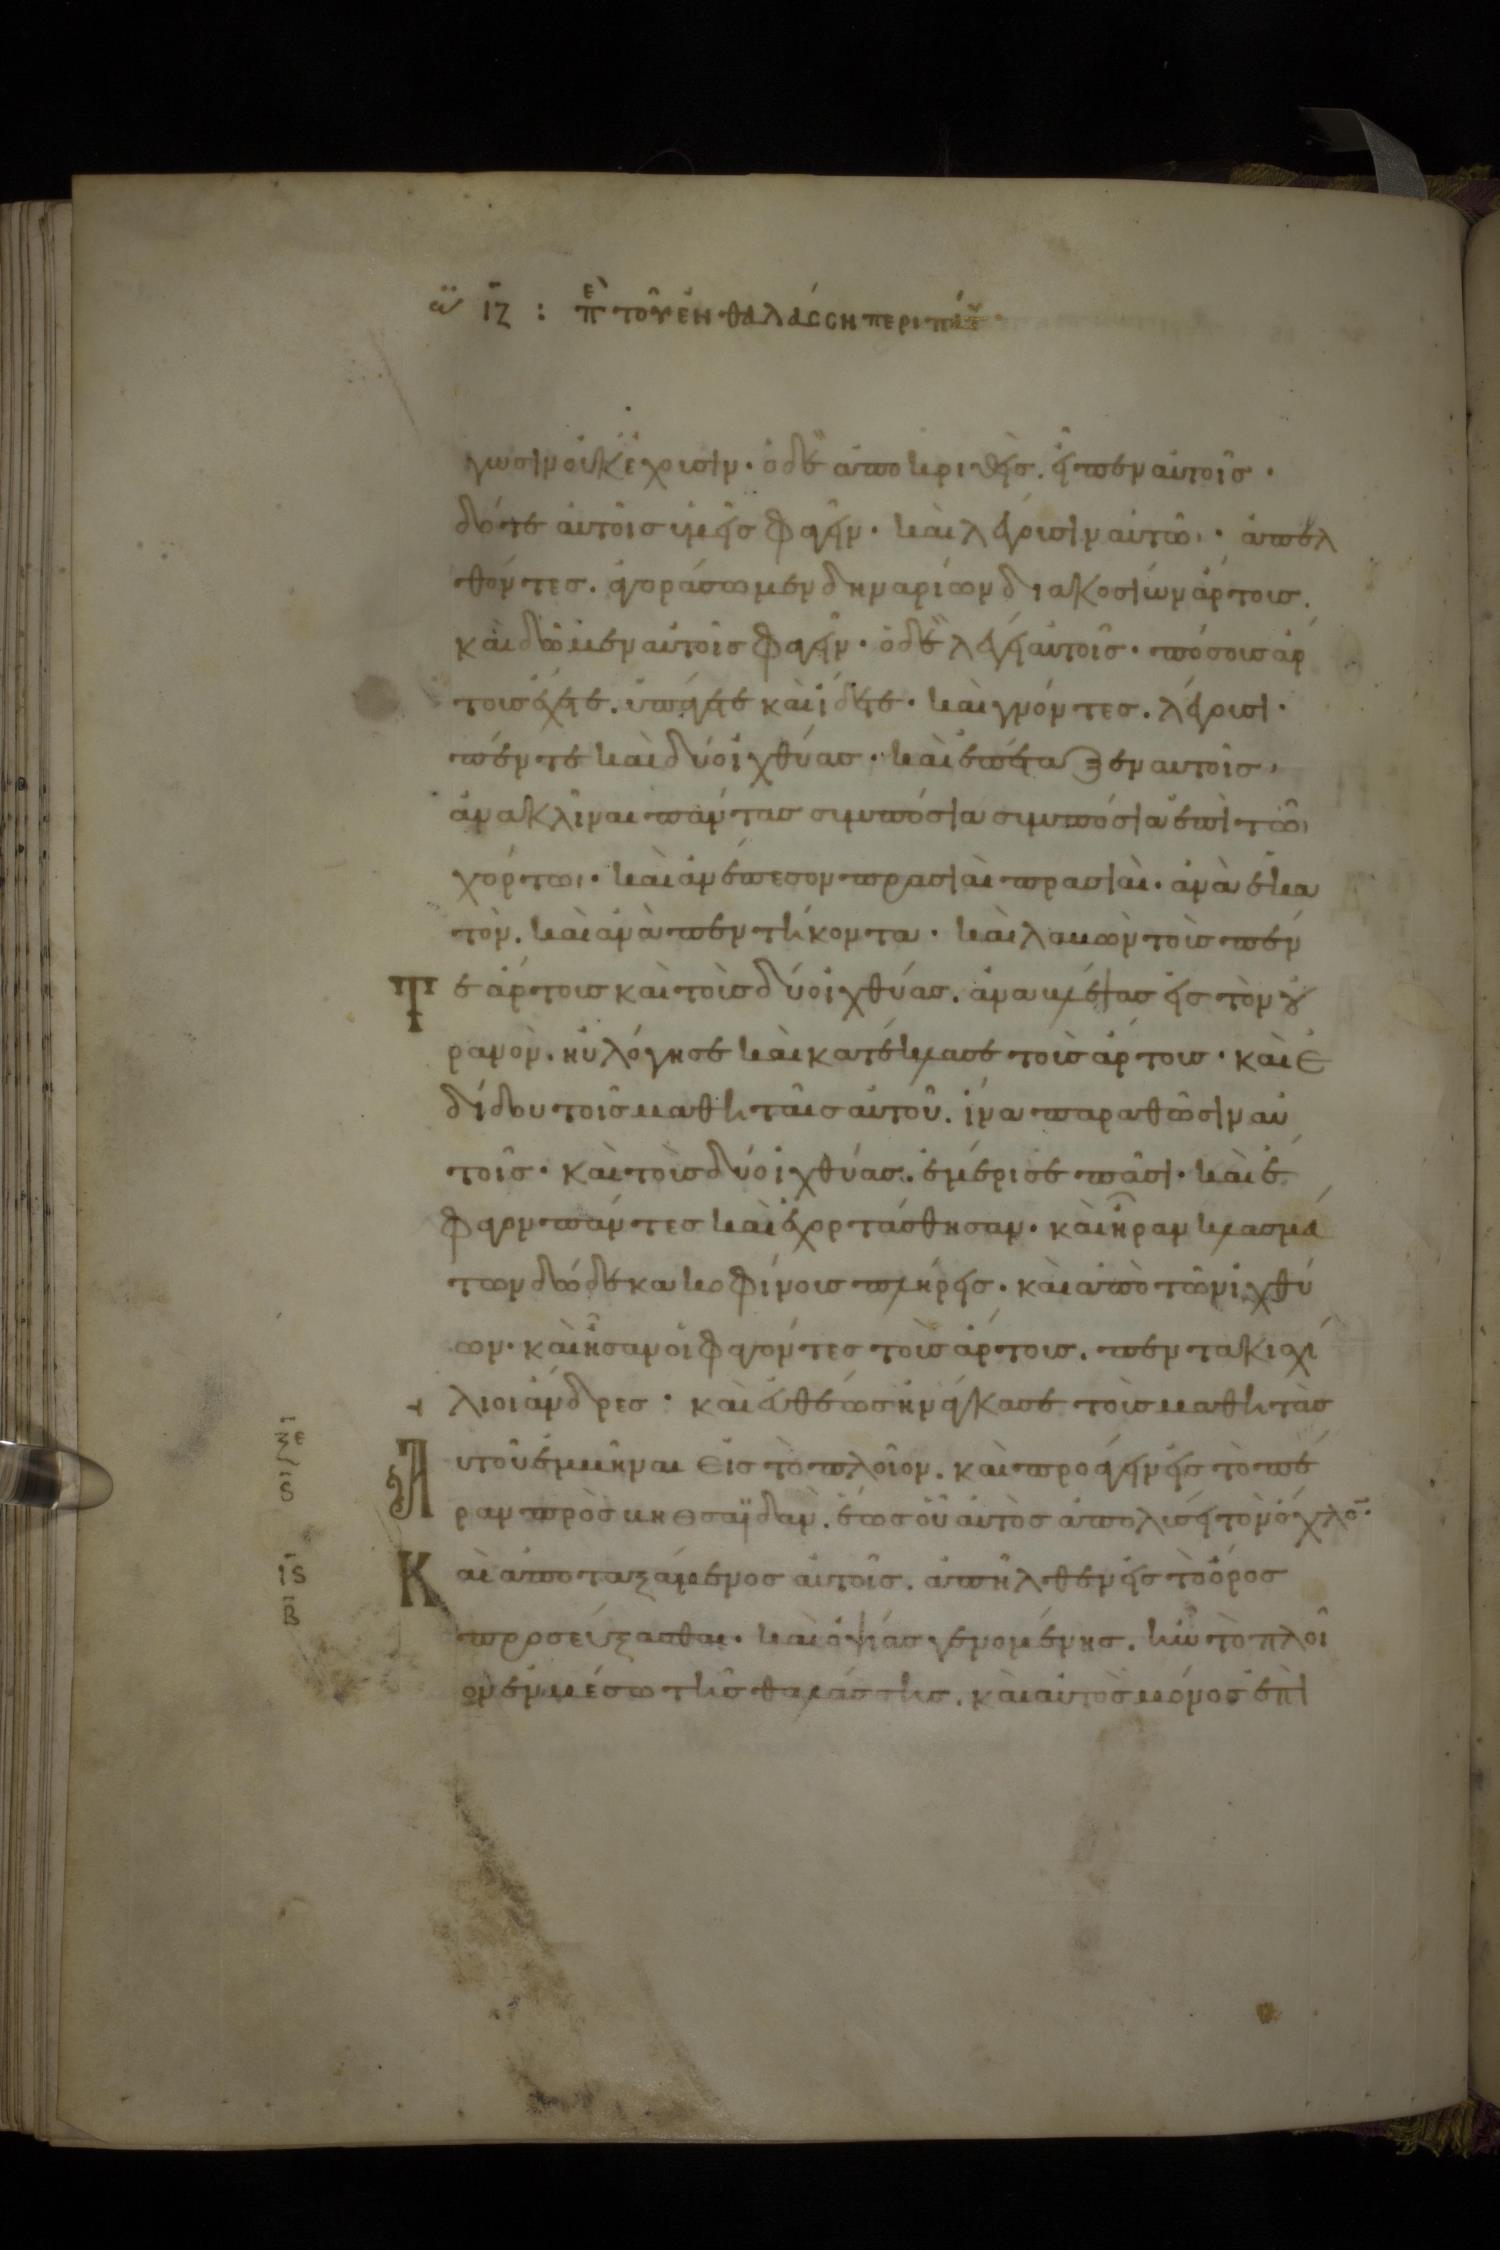 ιζ : πε τοῦ ἐν θαλάσση περιπάτ
γωσιν οὐκ ἔχουσιν· ὁ δὲ ἀποκριθεὶς. εἶπεν αὐτοῖς·
δότε αὐτοῖς ὑμεῖς φαγεῖν· καὶ λέγουσιν αὐτῶ· ἀπελ
θόντες. ἀγοράσωμεν δηναρίων διακοσίων ἄρτους.
καὶ δῶμεν αὐτοῖς φαγεῖν· ὁ δὲ λέγει αὐτοῖς· πόσους ἄρ
τους ἔχετε. ὑπάγετε καὶ ἴδετε· καὶ γνόντες. λέγουσι·
πέντε καὶ δύο ἰχθύας· καὶ ἐπέταξεν αὐτοῖς,
ἀνακλῖναι πάντας συμπόσια συμπόσια ἐπὶ τῶ
χόρτω· καὶ ἀνέπεσον πρασιαὶ πρασιαὶ· ἀνὰ ἑκα
τὸν. καὶ ἀνὰ πεντήκοντα· καὶ λαβὼν τοὺς πέν
Τε ἄρτους καὶ τοὺς δύο ἰχθύας. ἀναβλέψας εἰς τὸν οὐ
ρανὸν. ηὐλόγησε καὶ κατέκλασε τοὺς ἄρτους· καὶ ἐ
δίδου τοῖς μαθηταῖς αὐτοῦ. ἵνα παραθῶσιν αὐ
τοῖς· καὶ τοὺς δύο ἰχθύας. ἐμέρισε πᾶσι· καὶ ἔ
φαγον πάντες καὶ ἐχορτάσθησαν· καὶ ἦραν κλασμά
των δώδεκα κοφίνους πλήρεις· καὶ ἀπὸ τῶν ἰχθύ
ων· καὶ ἦσαν οἱ φαγόντες τοὺς ἄρτους. πεντακισχί
λιοι ἄνδρες· καὶ εὐθέως ἠνάγκασε τοὺς μαθητὰς
Αὐτοῦ ἐμβῆναι εἰς τὸ πλοῖον. καὶ προάγειν εἰς τὸ πέ
ραν πρὸς βηθσαϊδὰν. ἕως οὗ αὐτὸς ἀπολύσει τὸν ὄχλο
Καὶ ἀποταξάμενος αὐτοῖς. ἀπῆλθεν εἰς τὸ ὄρος
προσεύξασθαι· καὶ ὀψίας γενομένης. ἦν τὸ πλοῖ
ον ἐν μέσω τῆς θαλάσσης. καὶ αὐτὸς μόνος ἐπὶ
ξε
ς
ιϛ
β